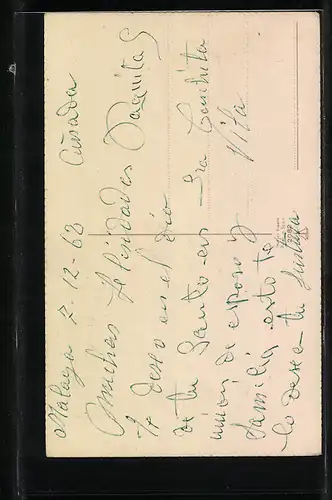 Malaga 7-12-62 Cuñada
Muchas felicidades Paquita
te deseo en el dia
de tu Santo en Sra Conchita
union de esposo y Vita
familia esto te
lo desea tu